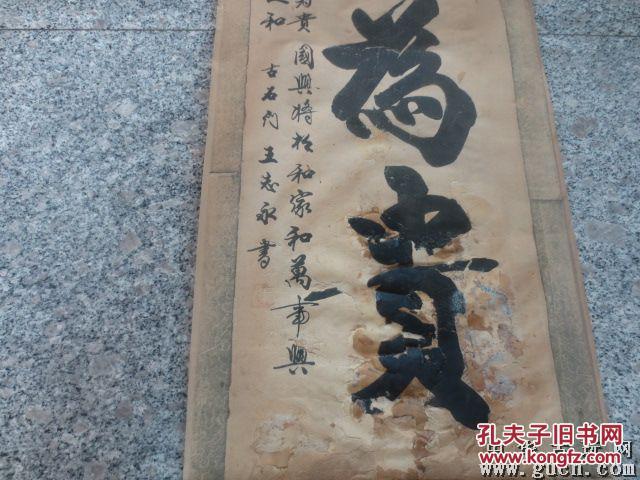 為貴
為貴 國興將於和家和萬事興
和 古石門 王志永書
孔夫子旧书网
www.kongfz.com
www.gucn.com